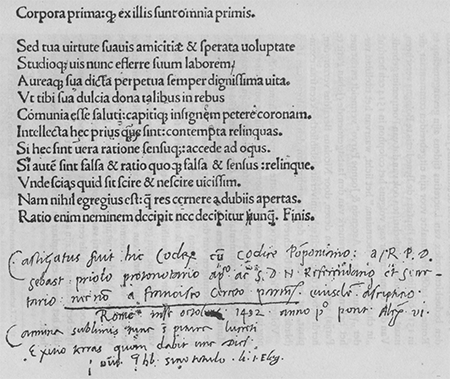 Corpora prima: qꝫ ex illis sunt omnia primis.
Sed tua uirtute suauis amicitiæ & sperata uoluptate
Studioqꝫ uis nunc efferre suum laborem,
Aureaqꝫ sua dicta perpetua semper dignissima uita.
Vt tibi sua dulcia dona talibus in rebus
Cōmunia esse saluti: capitiqꝫ insignem petere coronam.
Intellecta hec prius sint: contempta relinquas.
Si hec sint uera ratione sensuqꝫ: accede ad opus.
Si autē sint falsa & ratio quoqꝫ falsa & sensus: relinque.
Vnde scias quid sit scire & nescire uicissim.
Nam nihil egregius est: qꝫ res cernere a dubiis apertas.
Ratio enim neminem decipit nec decipitur nunqꝫ. Finis.
Castigatus fuit hic Codex cū Codice Pōponiano: a R. P. D.
Sebast. priolo protonotario ap̄o ac S. D. N. Referendario et Secre-
tario: nec nō a Francisco Cereto eiusdem discipulo
Rome octob 1492 anno pº pont Alex vi.
Carmina sublimis tunc
Exitio terras quum dabit una dies